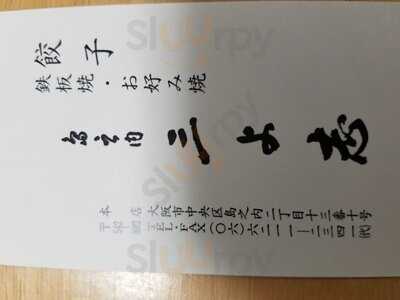 餃子
鉄板焼・お好み焼
島之内 二よ志
本店 大阪市中央区島之内二丁目十三番十号
TEL・FAX(〇六)六二一一―二三四一(代)